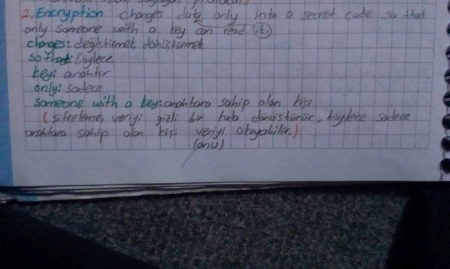 2. Encryption changes data only into a secret code so that
only someone with a key can read it.
changes: değiştirmek, dönüştürmek
so that: böylece
key: anahtar
only: sadece
someone with a key: anahtara sahip olan kişi
( şifreleme, veriyi gizli bir koda dönüştürür, böylece sadece
anahtara sahip olan kişi veriyi okuyabilir.)
(onu)